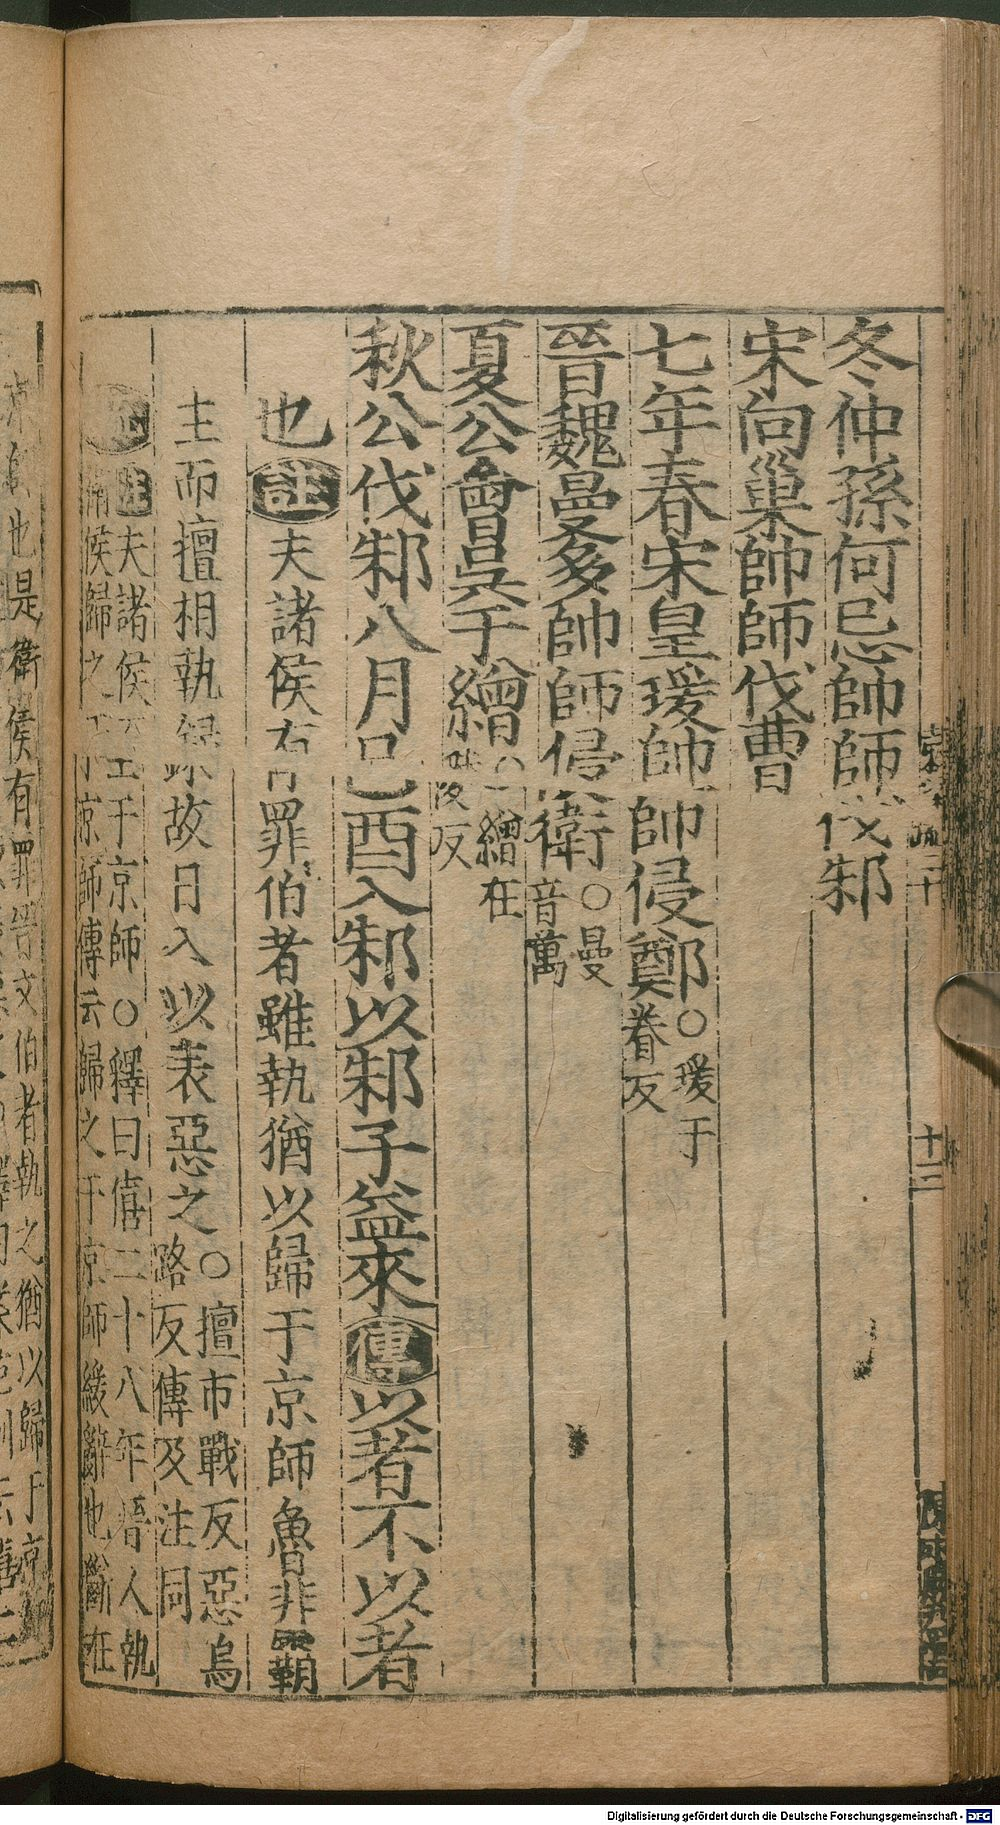 冬仲孫何忌帥師伐邾
宋向巢帥師伐曹
七年春宋皇瑗帥師侵鄭○瑗于
眷反
晉魏曼多帥師侵衛○曼
音萬
夏公會吳于繒○繒在
陵反
秋公伐邾八月己酉入邾以邾子益來傳以者不以者
也註夫諸侯有罪伯者雖執猶以歸于京師魯非霸
主而擅相執錄故日入以表惡之○擅市戰反惡烏
路反傳及注同
註夫諸侯至于京師○釋曰僖二十八年晉人執
衛侯歸之于京師傳云歸之于京師緩辭也斷在
十三
也是衛侯有罪晉文伯者執之猶以歸于京師
Digitalisierung gefördert durch die Deutsche Forschungsgemeinschaft - DFG